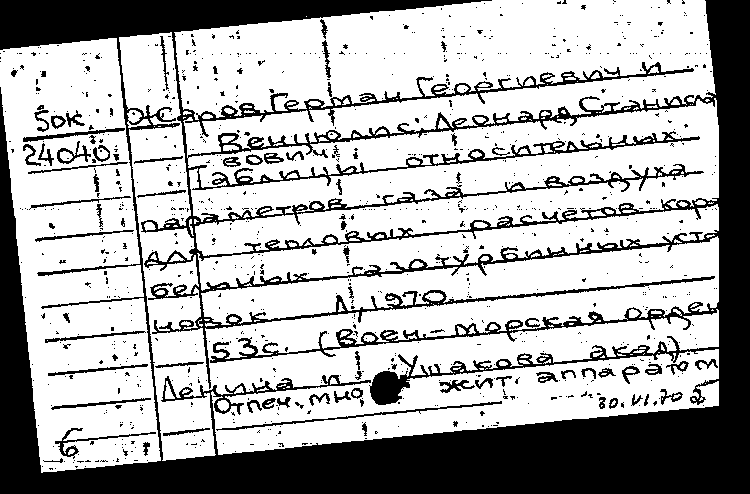 5ок Жаров, Герман Георгиевич и
24040. Венцюлис, Леонард Станисла
вович.
Таблицы относительных
параметров газа и воздуха
для тепловых расчетов кора
бельных газотурбинных уста
новок Л., 1970.
53с. (Воен.-морская орден
Ленина и Ушакова акад)
Отпеч. мно жит. аппаратом
6 30.VI.70